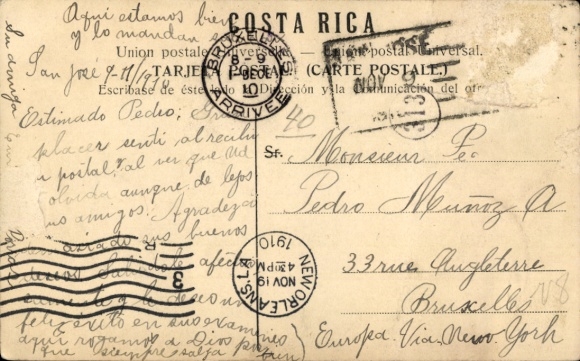 Aqui estamos bien
y lo mandan
COSTA RICA
Union postale universelle. — Unión postal universal.
TARJETA POSTAL (CARTE POSTALE)
Escríbase de éste lado la Dirección y la comunicación del otro
San José 9-11/1910
Estimado Pedro; Gran
placer sentí al recibir
su postal, al ver que Ud
olvida aunque de lejos
sus amigos. Agradezco
sus buenos
deseos
y le deseo un
feliz éxito en sus exámenes
aquí rogamos a Dios para
que siempre salga bien
Su amiga
BRUXELLES
8-9
DEC
10
ARRIVEE
NOV 9
313
40
Sr. Monsieur
Pedro Muñoz A
33 rue Angleterre
Bruxelles
Europa Via. New York
NEW ORLEANS, LA
NOV 19
430 PM
1910
3
V8